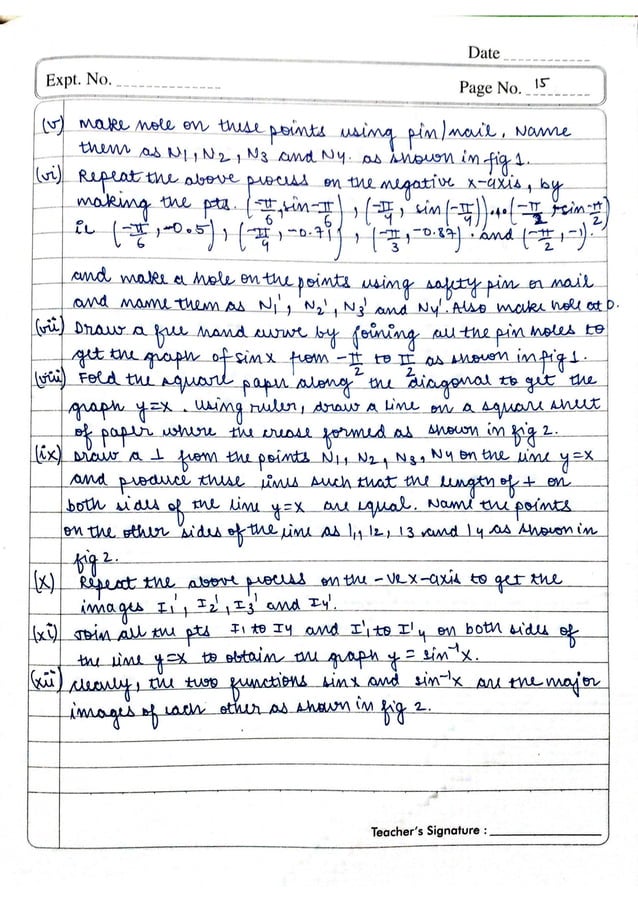 Date
Expt. No.
Page No. 15
(v) make hole on these points using pin/nail. Name
them as N1, N2, N3 and N4. as shown in fig 1.
(vi) Repeat the above process on the negative x-axis, by
making the pts. (-π/6, sin -π/6), (-π/4, sin(-π/4))...(-π/2, sin -π/2)
ie (-π/6, -0.5), (-π/4, -0.71), (-π/3, -0.87). and (-π/2, -1).
and make a hole on the points using safety pin or nail
and name them as N1', N2', N3' and N4'. Also make hole at O.
(vii) Draw a free hand curve by joining all the pin holes to
get the graph of sin x from -π/2 to π/2 as shown in fig 1.
(viii) Fold the square paper along the diagonal to get the
graph y=x. Using ruler, draw a line on a square sheet
of paper where the crease formed as shown in fig 2.
(ix) Draw a ⊥ from the points N1, N2, N3, N4 on the line y=x
and produce these lines such that the length of + on
both sides of the line y=x are equal. Name the points
on the other sides of the line as I1, I2, I3 and I4 as shown in
fig 2.
(x) Repeat the above process on the -ve x-axis to get the
images I1', I2', I3' and I4'.
(xi) Join all the pts I1 to I4 and I'1 to I'4 on both sides of
the line y=x to obtain the graph y = sin⁻¹x.
(xii) clearly, the two functions sinx and sin⁻¹x are the major
images of each other as shown in fig 2.
Teacher's Signature :